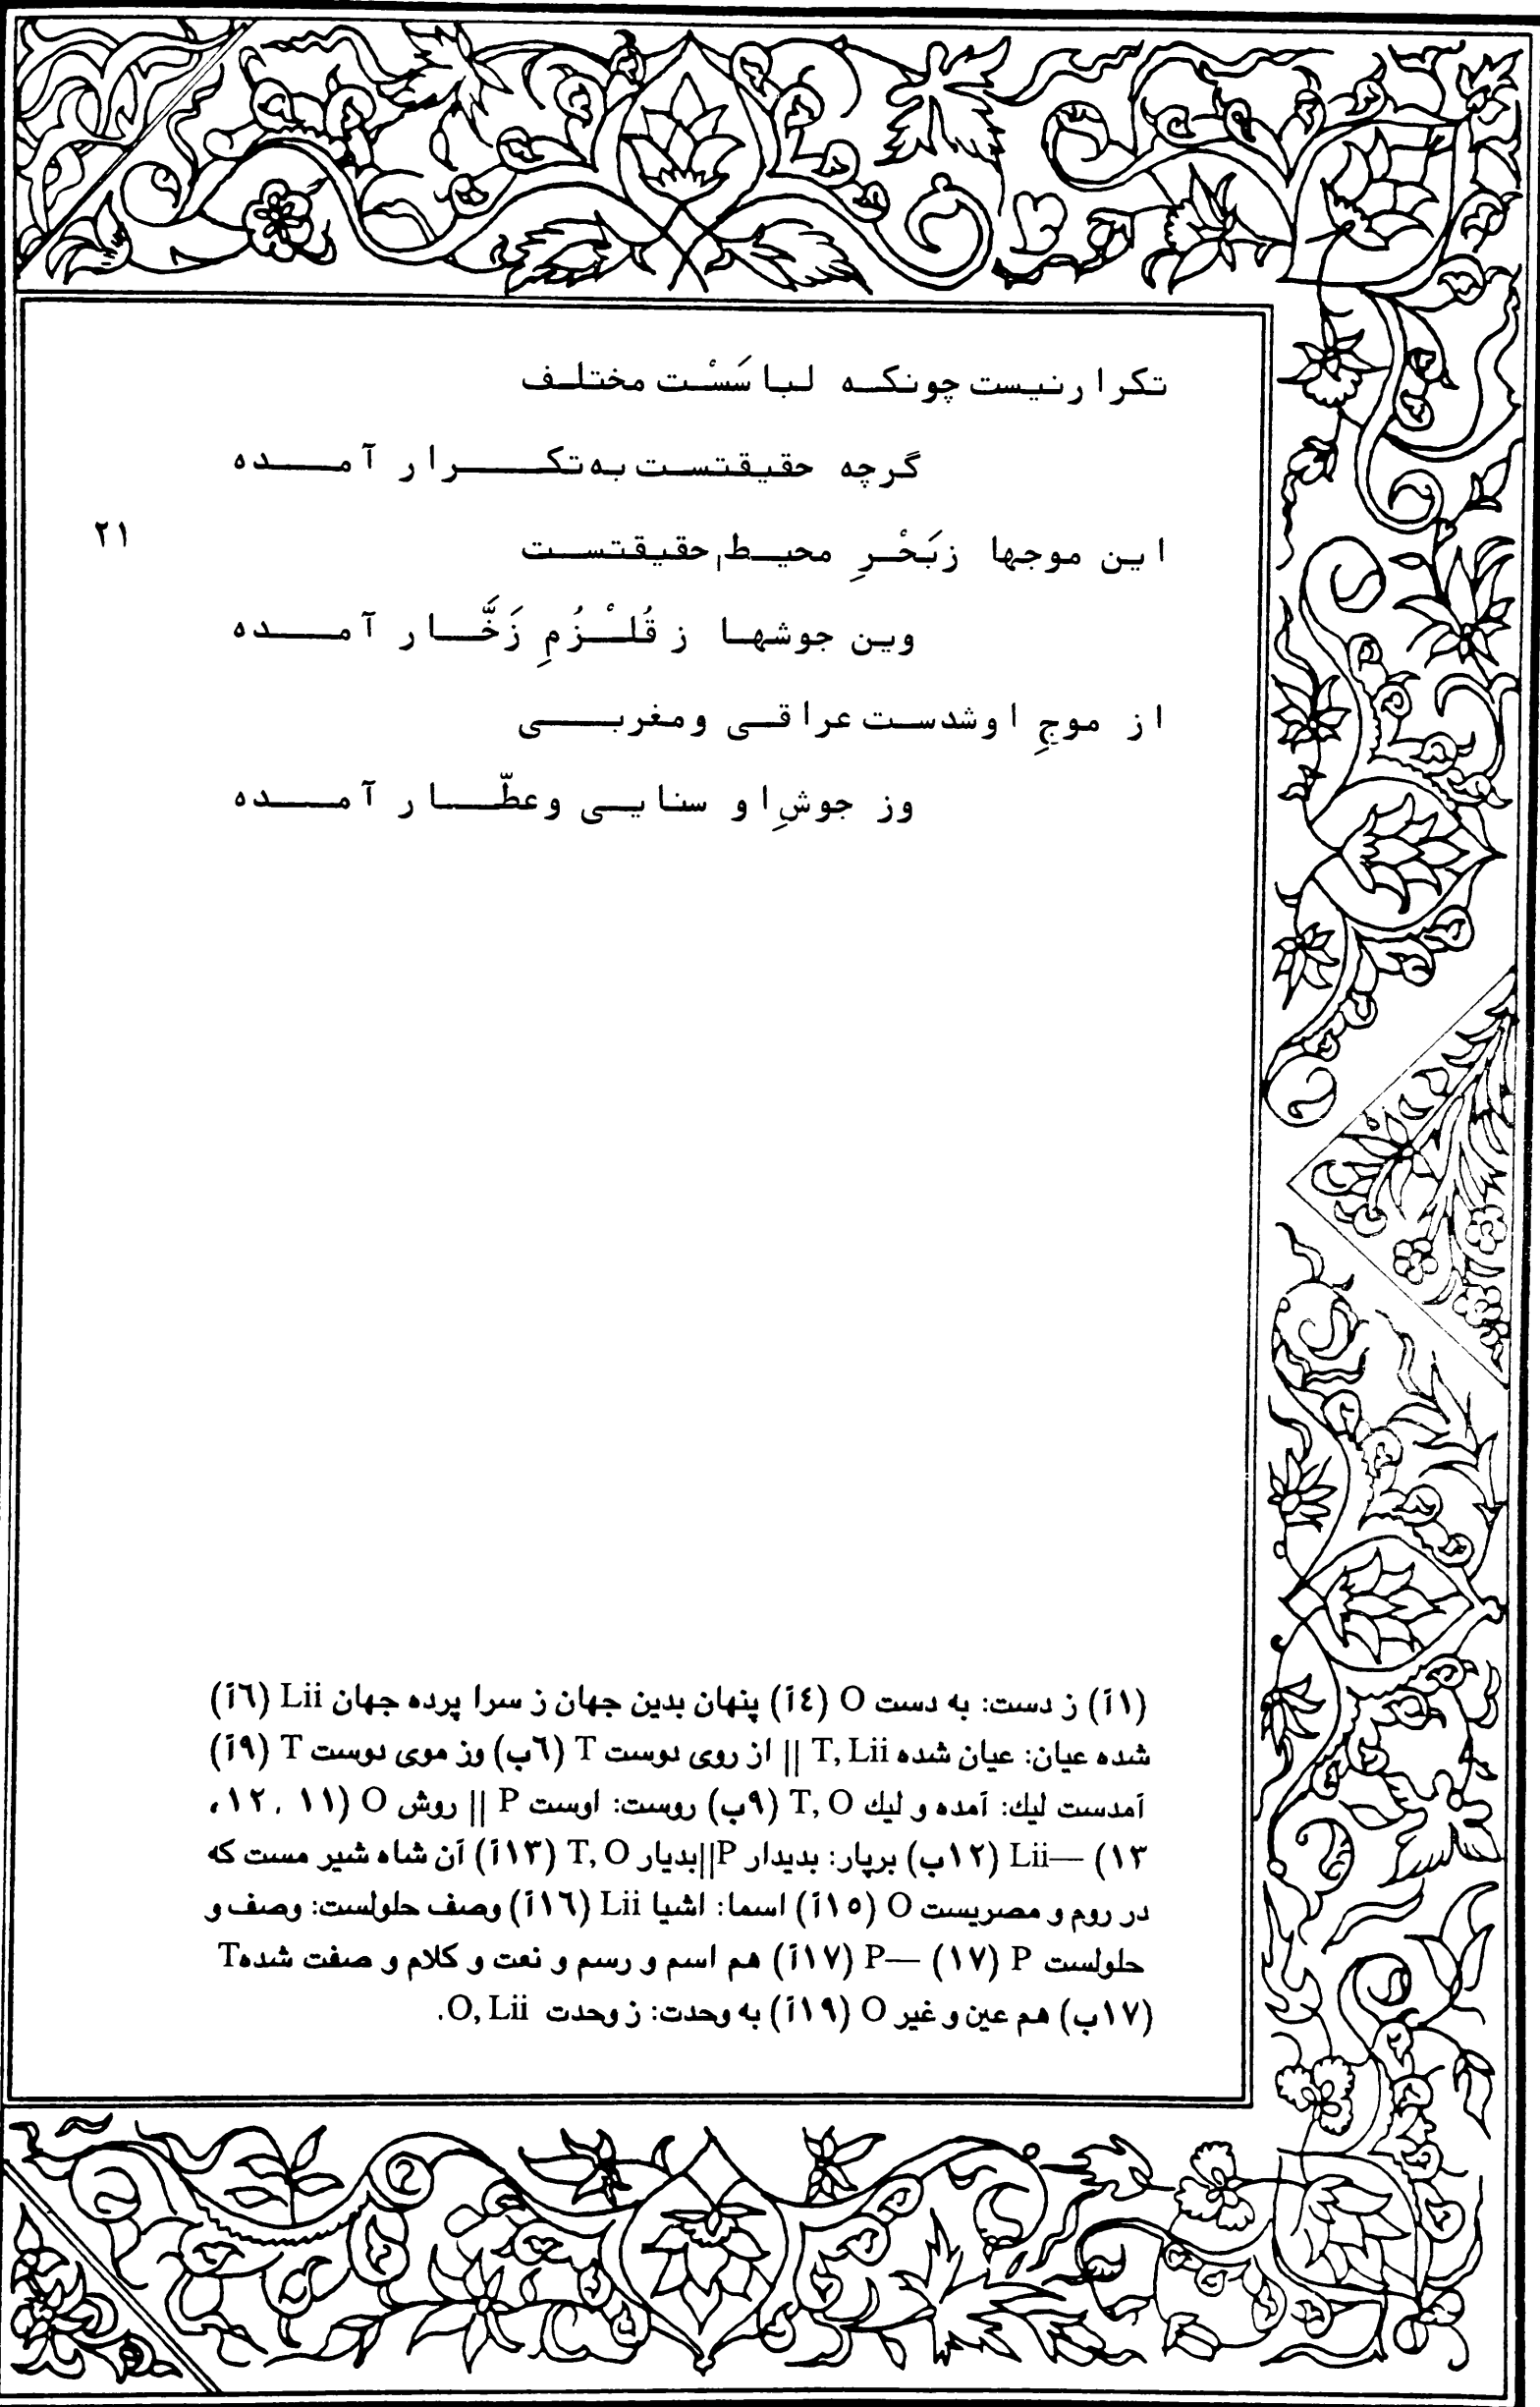 تکرار نیست چونکه لباسَسْت مختلف
گرچه حقیقتست به تکرار آمده
این موجها ز بَحْرِ محیطِ حقیقتست
۲۱
وین جوشها ز قُلْزُمِ زَخَّار آمده
از موجِ او شدست عراقی و مغربی
وز جوشِ او سنایی و عطّار آمده
(۱آ) ز دست: به دست O (٤آ) پنهان بدین جهان ز سرا پرده جهان Lii (٦آ)
شده عیان: عیان شده T, Lii || از روی دوست T (٦ب) وز موی دوست T (۹آ)
آمدست لیك: آمده و لیك T, O (۹ب) روست: اوست P || روش O (۱۱، ۱۲،
۱۳) —Lii (۱۲ب) برپار: بدیدار P||بدیار T, O (۱۳آ) آن شاه شیر مست که
در روم و مصریست O (۱٥آ) اسما: اشیا Lii (۱٦آ) وصف حلولست: وصف و
حلولست P (۱۷) —P (۱۷آ) هم اسم و رسم و نعت و کلام و صفت شده T
(۱۷ب) هم عین و غیر O (۱۹آ) به وحدت: ز وحدت O, Lii.